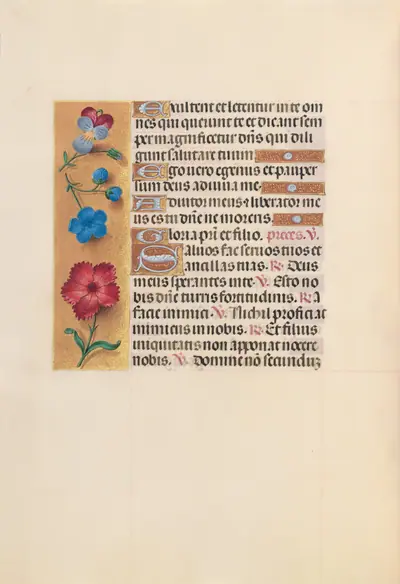 Exultent et letentur in te om
nes qui querunt te et dicant sem
per magnificetur dn̄s qui dili
gunt salutare tuum
Ego vero egenus et pauper
sum deus adiuva me.
Adiutor meus et liberator me
us es tu dn̄e ne moreris.
Gloria pr̄i et filio. preces. V.
Salvos fac servos tuos et
ancillas tuas. R. Deus
meus sperantes in te. V. Esto no
bis dn̄e turris fortitudinis. R. A
facie inimici. V. Nichil proficiat
inimicus in nobis. R. Et filius
iniquitatis non apponat nocere
nobis. V. Domine nō secundū